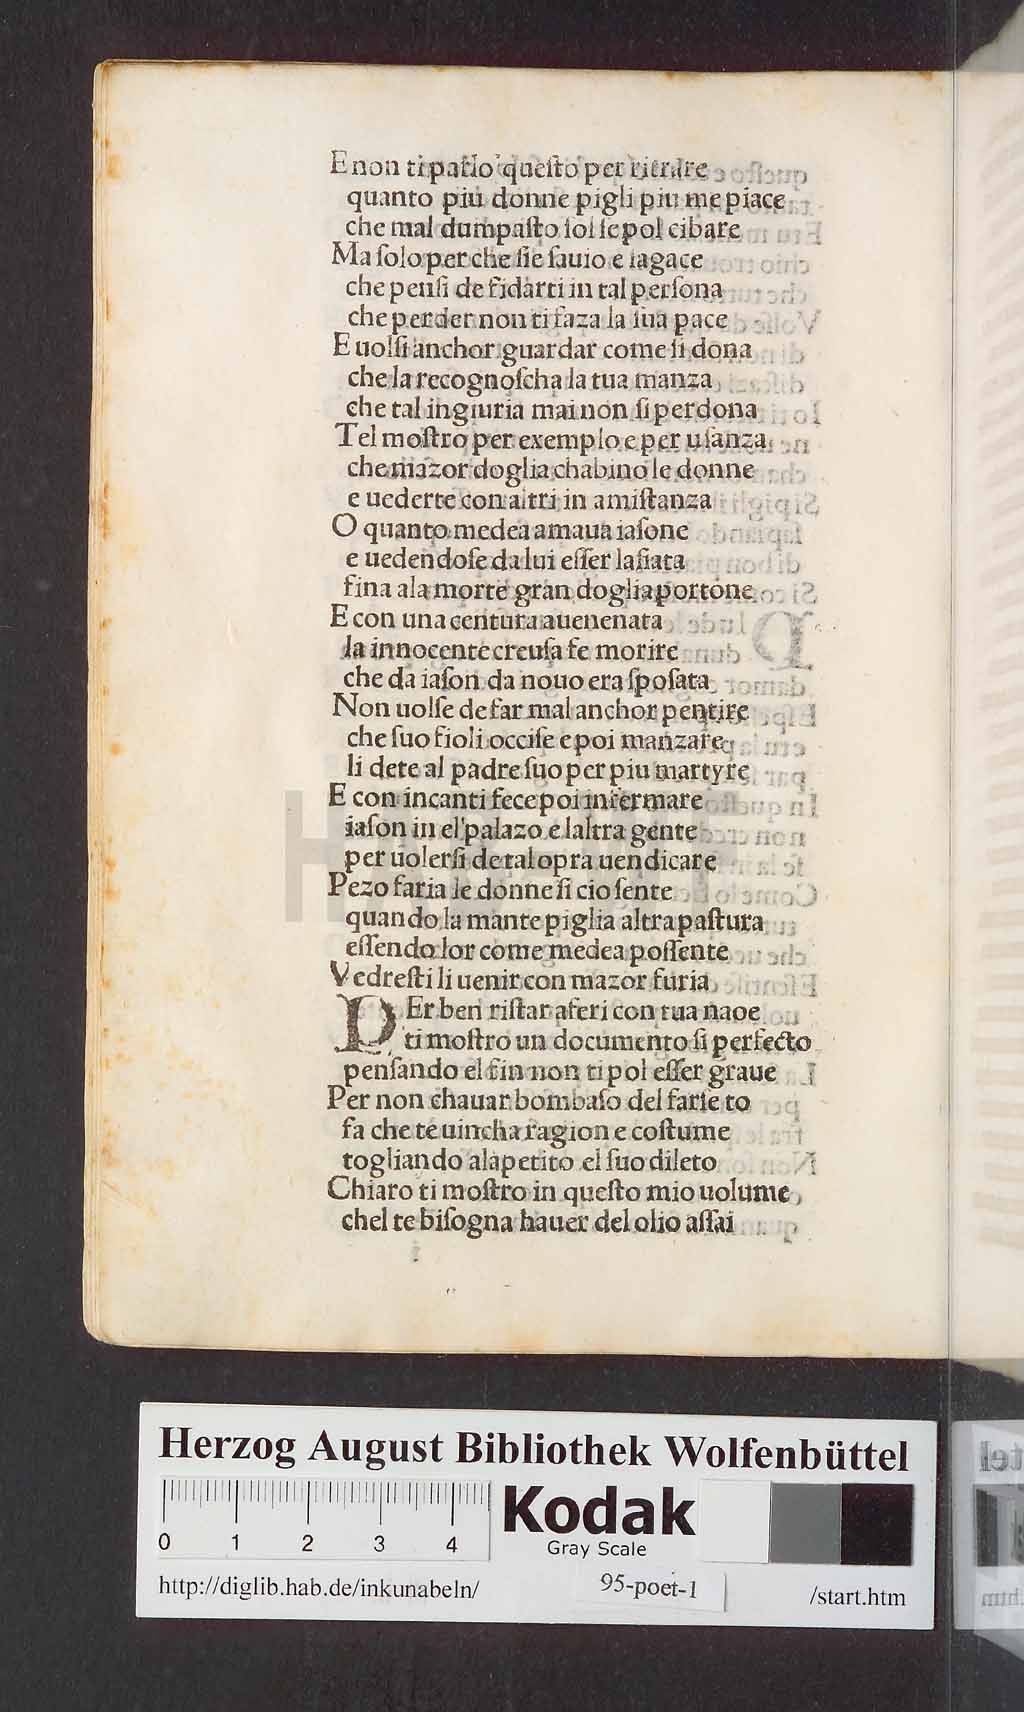 E non ti parlo queſto per ritrare
quanto piu donne pigli piu me piace
che mal dumpaſto ſol ſe pol cibare
Ma ſolo per che ſie ſauio e ſagace
che penſi de fidarti in tal perſona
che perder non ti faza la ſua pace
E uolſi anchor guardar come ſi dona
che la recognoſcha la tua manza
che tal ingiuria mai non ſi perdona
Tel moſtro per exemplo e per uſanza
che mazor doglia chabino le donne
e uederte con altri in amiſtanza
O quanto medea amaua iaſone
e uedendoſe da lui eſſer laſiata
fina ala morte gran doglia portone
E con una centura auenenata
la innocente creuſa fe morire
che da iaſon da nouo era ſpoſata
Non uolſe de far mal anchor pentire
che ſuo fioli occiſe e poi manzare
li dete al padre ſuo per piu martyre
E con incanti fece poi infermare
iaſon in el palazo e laltra gente
per uolerſi de tal opra uendicare
Pezo faria le donne ſi cio ſente
quando la mante piglia altra paſtura
eſſendo lor come medea poſſente
Vedreſti li uenir con mazor furia
PEr ben riſtar aferi con tua naoe
ti moſtro un documento ſi perfecto
penſando el fin non ti pol eſſer graue
Per non chauar bombaſo del farſe to
fa che te uincha ragion e coſtume
togliando alapetito el ſuo dileto
Chiaro ti moſtro in queſto mio uolume
chel te biſogna hauer del olio aſſai
i
HAB
Herzog August Bibliothek Wolfenbüttel
0 1 2 3 4
Kodak
Gray Scale
http://diglib.hab.de/inkunabeln/ 95-poet-1 /start.htm